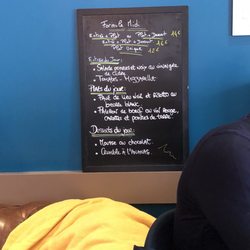 Formule Midi
Entrée + Plat ou Plat + Dessert
Entrée + Plat + Dessert
Plat Unique 12€
Entrées du jour:
• Salade au vinaigre
de cidre
• Tomates - Mozzarella
Plats du jour:
• de lieu noir et risotto au
beurre blanc
• de bœuf au vin rouge,
carottes et pommes de terre
Desserts du jour:
• Mousse au chocolat
• Crumble à l'Ananas